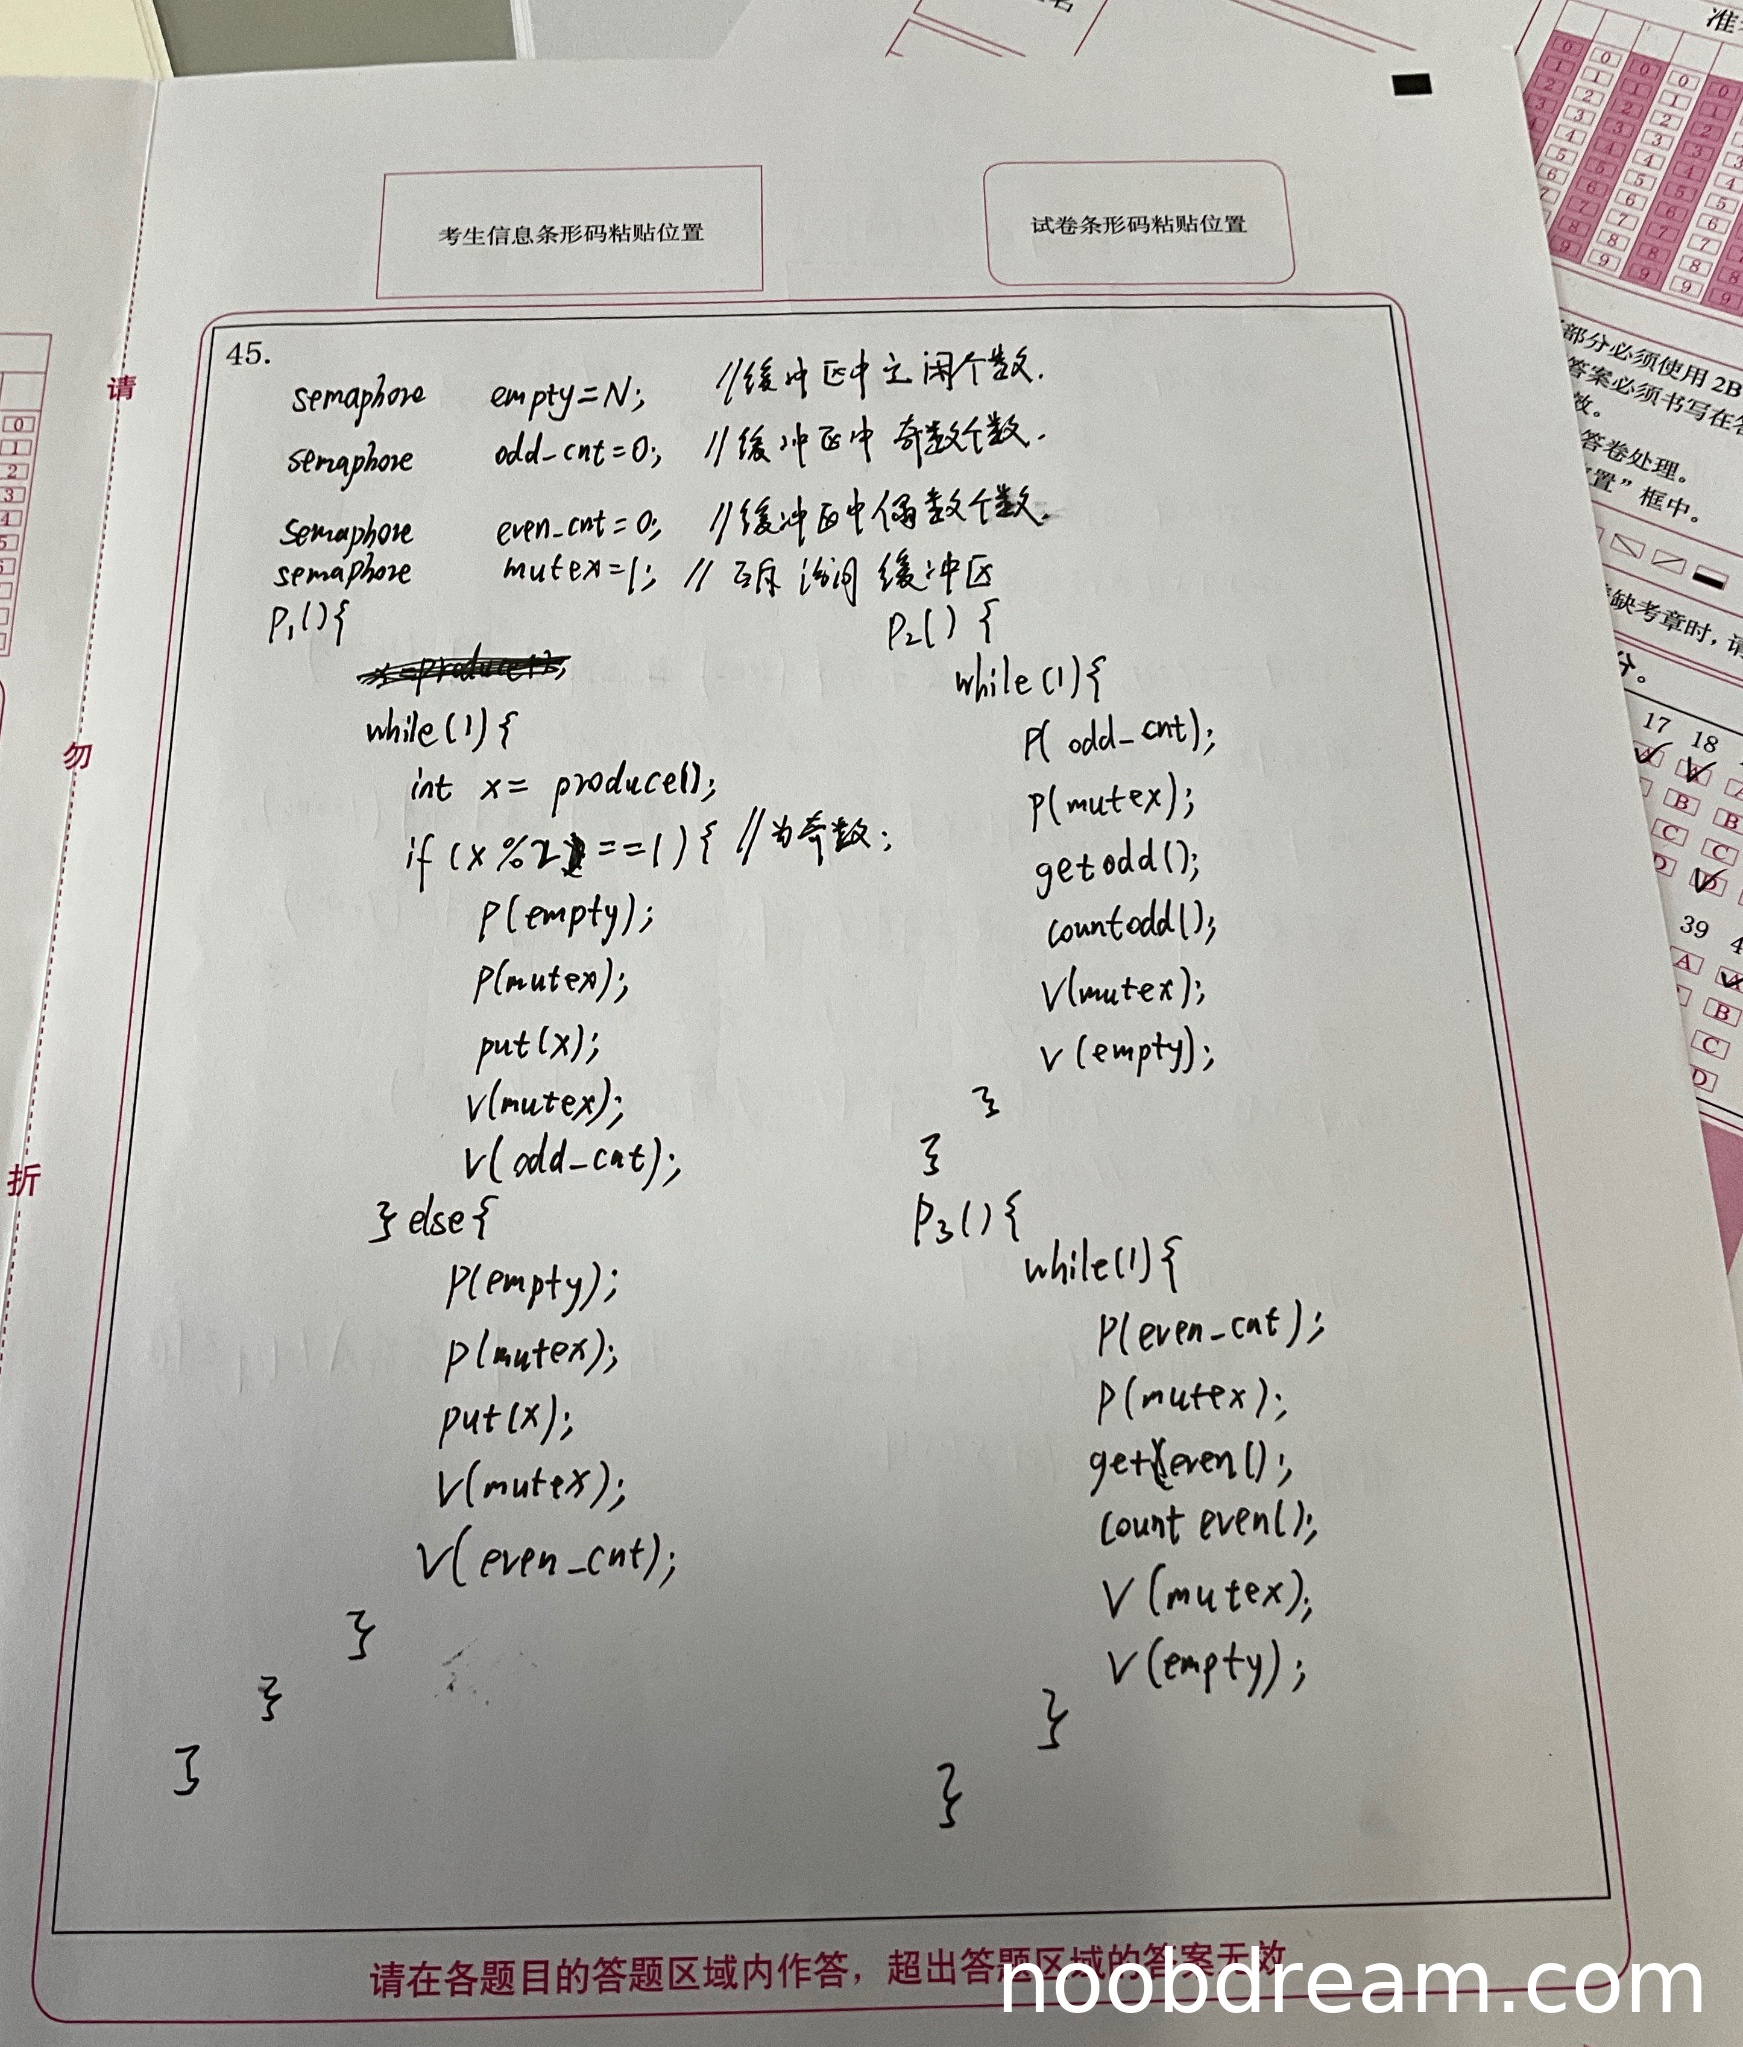 考生信息条形码粘贴位置
试卷条形码粘贴位置
45.
semaphore empty=N; //缓冲区中空闲个数.
semaphore odd_cnt=0; //缓冲区中奇数个数.
semaphore even_cnt=0; //缓冲区中偶数个数.
semaphore mutex=1; //互斥访问缓冲区
P₁(){
while(1){
int x= produce();
if (x%2==1){ //为奇数;
P(empty);
P(mutex);
put(x);
V(mutex);
V(odd_cnt);
}else{
P(empty);
P(mutex);
put(x);
V(mutex);
V(even_cnt);
}
}
}
P₂(){
while(1){
P(odd_cnt);
P(mutex);
getodd();
countodd();
V(mutex);
V(empty);
}
}
P₃(){
while(1){
P(even_cnt);
P(mutex);
geteven();
count even();
V(mutex);
V(empty);
}
}
请在各题目的答题区域内作答，超出答题区域的答案无效
请
勿
折
部分必须使用 2B
答案必须书写在答
效。
答卷处理。
置”框中。
缺考章时，请
分。
17 18
39 4
noobdream.com